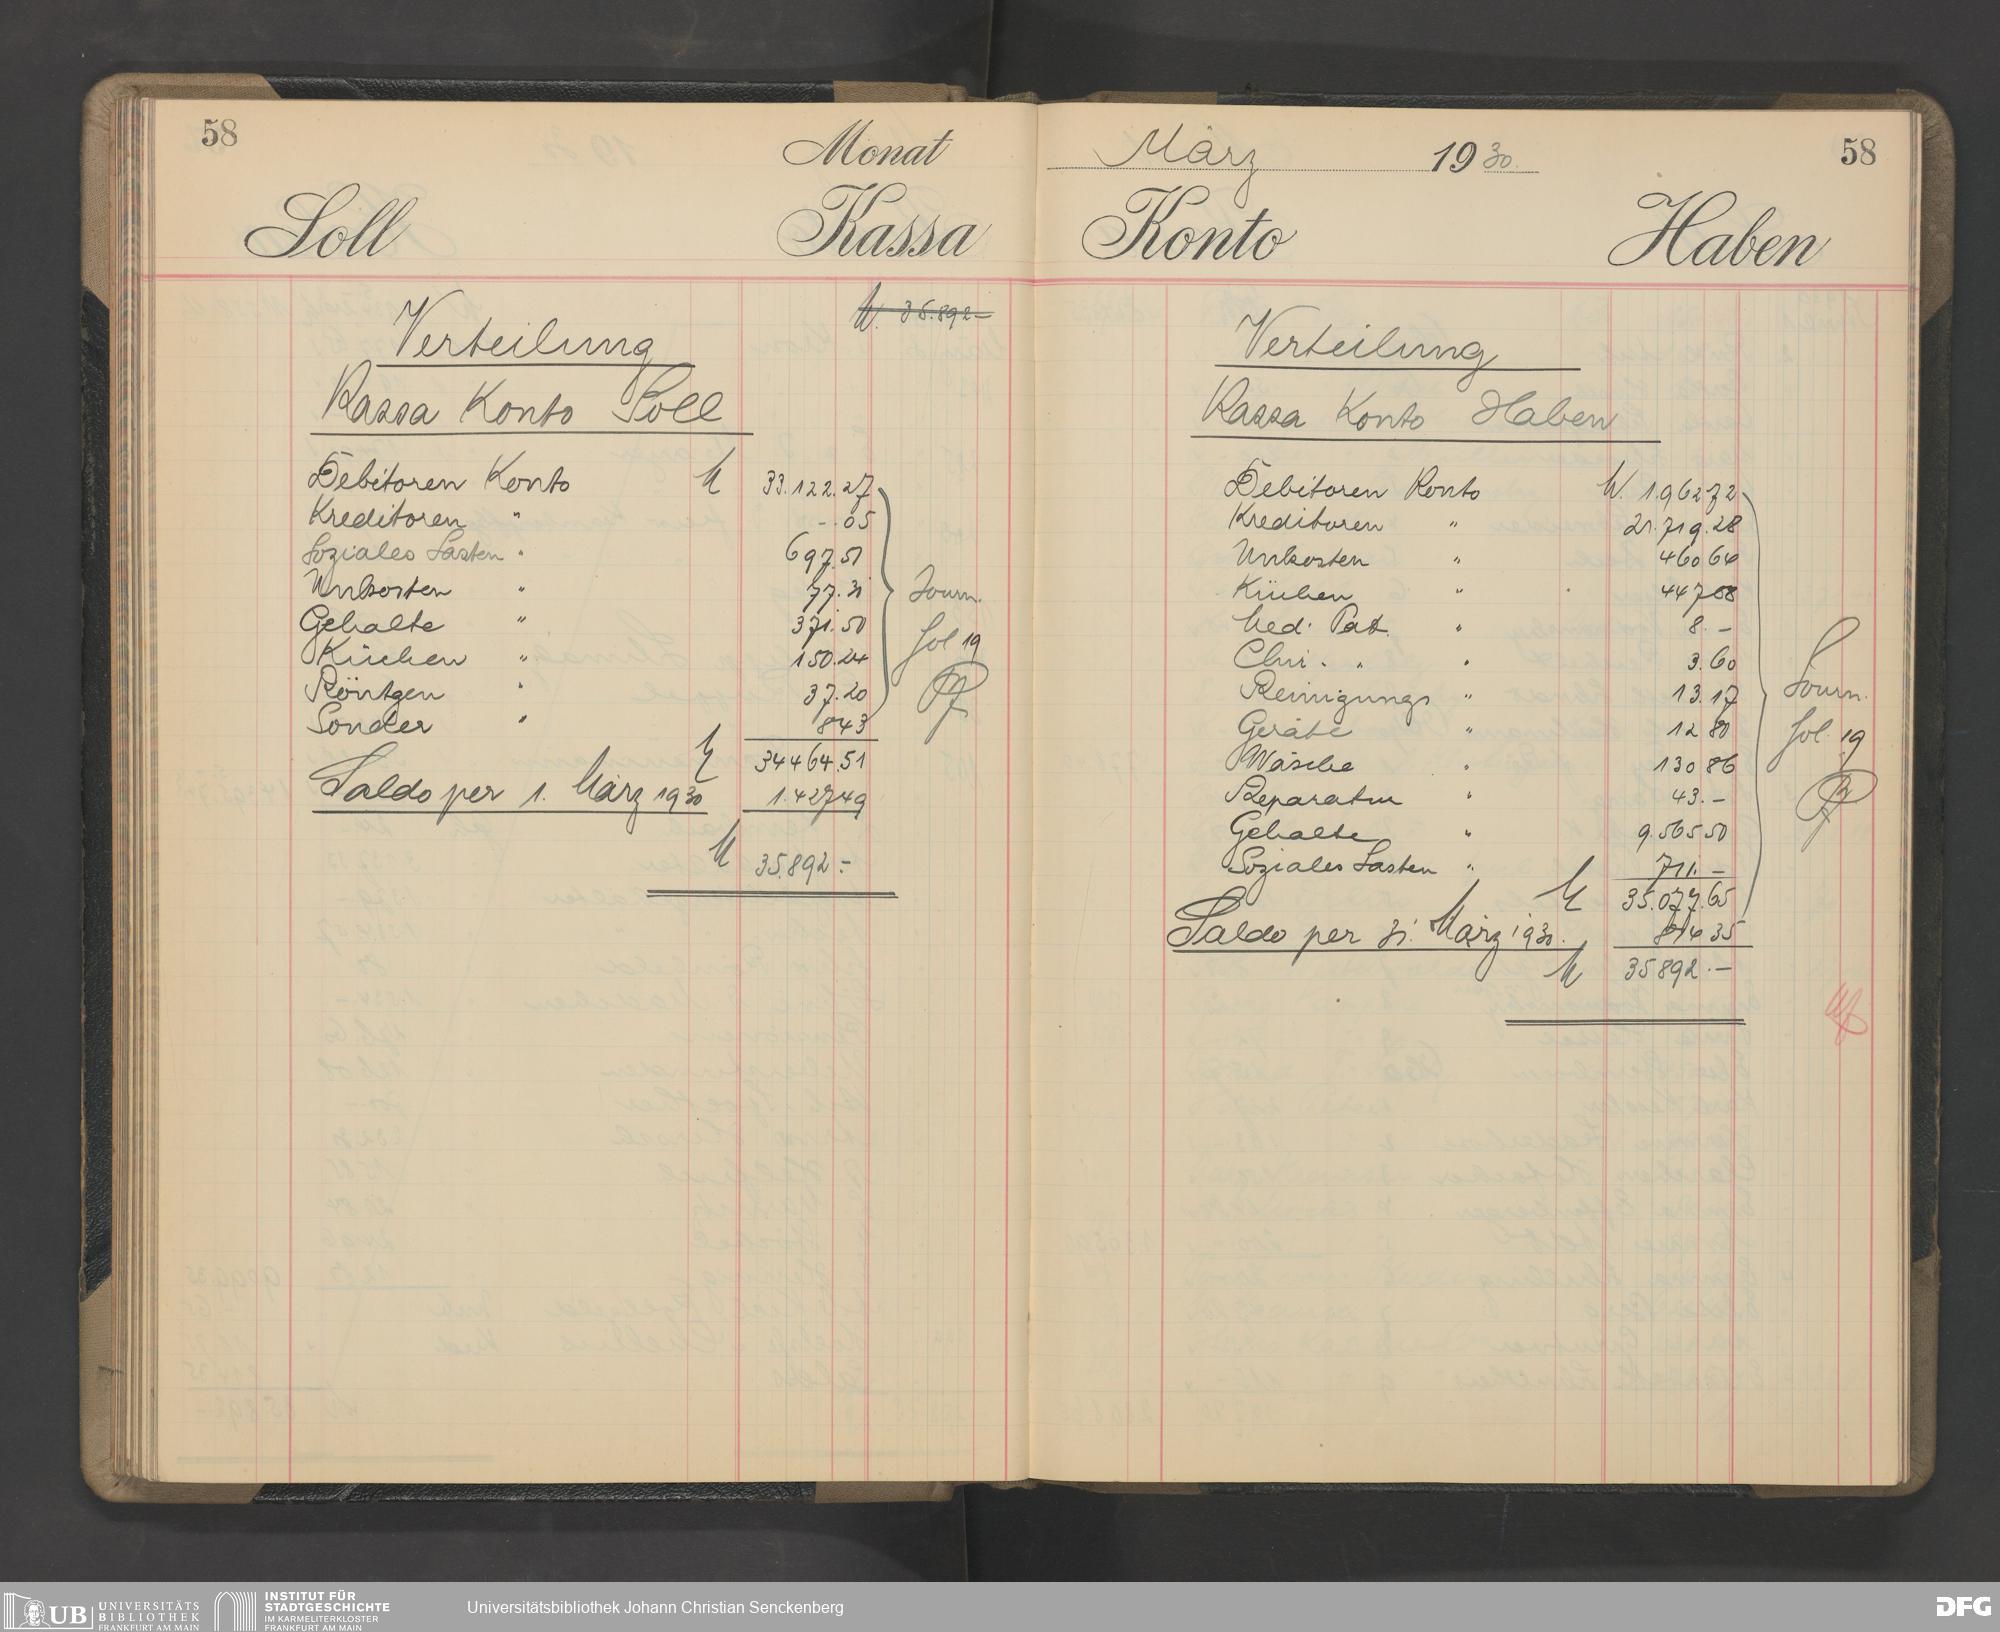 58
Monat
Soll
Kassa
M. 35.892-
Verteilung
Kassa Konto Soll
Debitoren Konto M 33.122.27
Kreditoren " -.05
Soziales Lasten " 697.51
Unkosten " 77.31
Gehalte " 371.50
Küchen " 150.24
Röntgen " 37.20
Sonder " 843
M 34464.51
Saldo per 1. März 1930 1.42749
M 35.892.-
Journ.
fol 19
März 1930.
58
Konto
Haben
Verteilung
Kassa Konto Haben
Debitoren Konto M. 1.96272
Kreditoren " 21.719.28
Unkosten " 46064
Küchen " 44708
Med. Pat. " 8.-
Chir. " " 3.60
Reinigungs " 13.17
Geräte " 1280
Wäsche " 13086
Reparatur " 43.-
Gehalte " 9.56550
Soziales Lasten " 711.-
M 35.077.65
Saldo per 31. März 1930. 81435
M 35892.-
Journ.
fol. 19
UB UNIVERSITÄTS
BIBLIOTHEK
FRANKFURT AM MAIN
INSTITUT FÜR
STADTGESCHICHTE
IM KARMELITERKLOSTER
FRANKFURT AM MAIN
Universitätsbibliothek Johann Christian Senckenberg
DFG